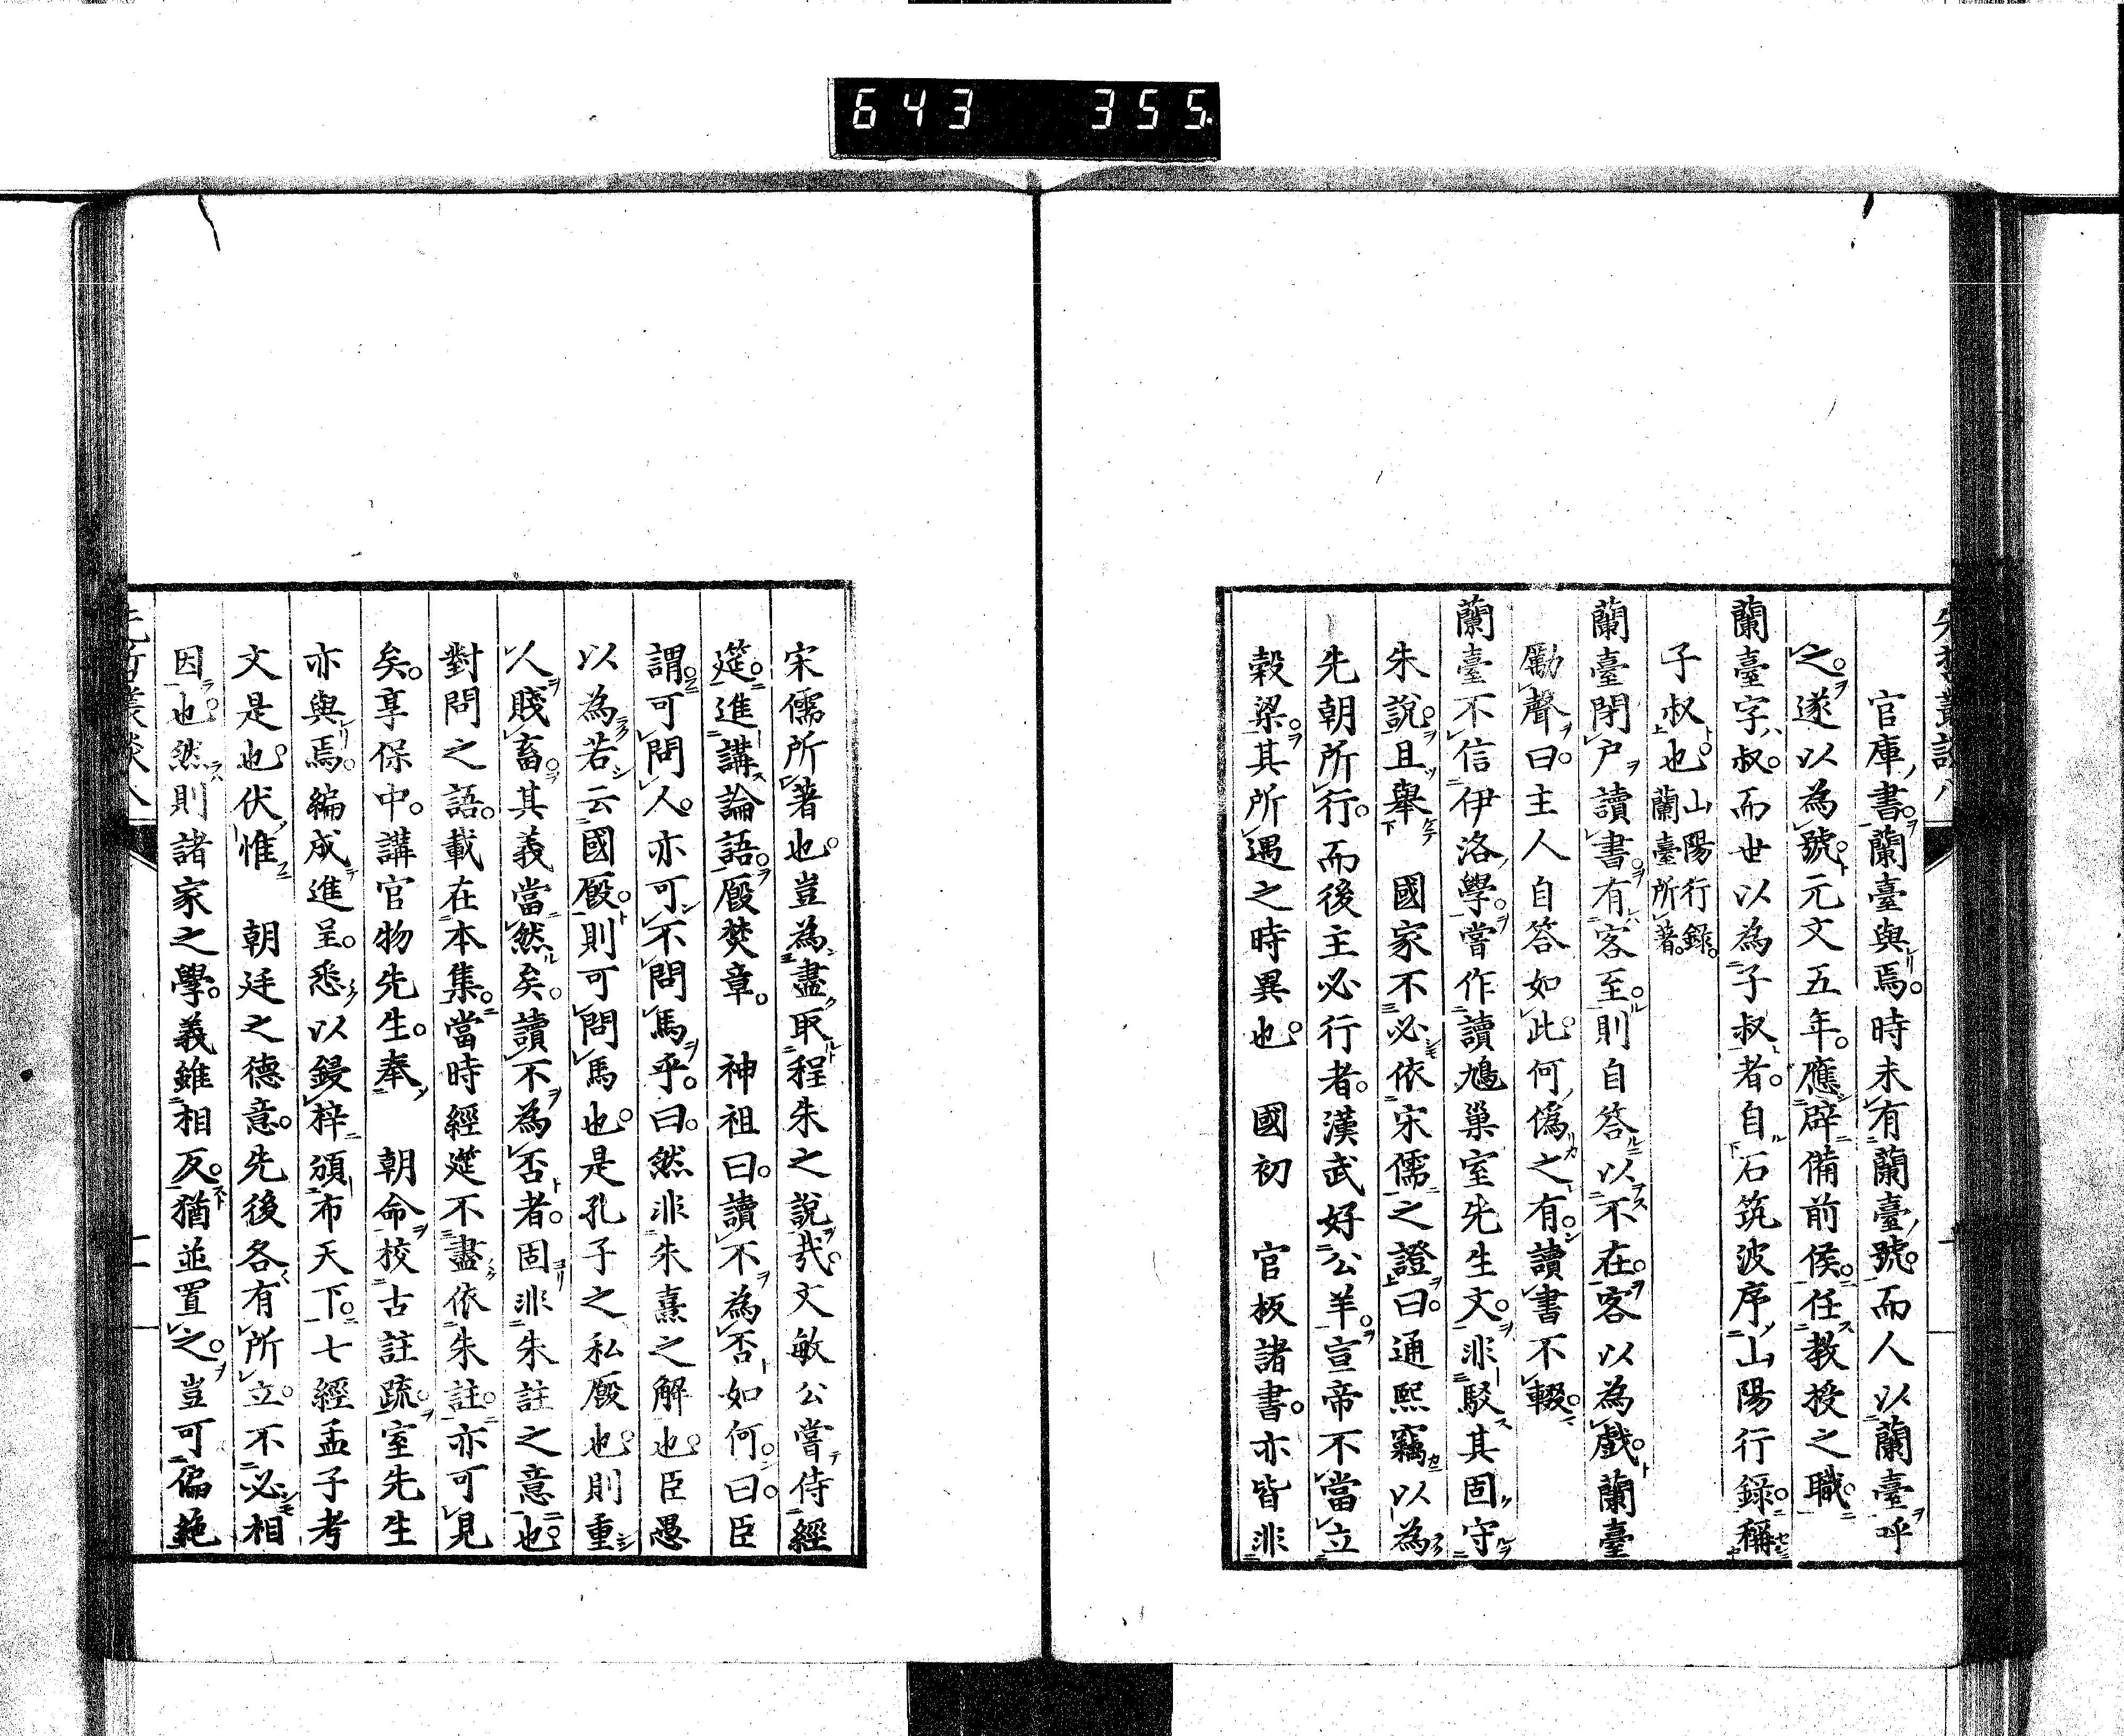 643 355
先哲叢談八
官庫書。蘭臺與焉。時未有蘭臺號。而人以蘭臺呼
之。遂以為號。元文五年。應辟備前侯。任教授之職。
蘭臺字叔。而世以為子叔者。自石筑波序山陽行錄。稱
子叔也。山陽行錄。蘭臺所著。
蘭臺閉户讀書。有客至。則自答以不在。客以為戲。蘭臺
勵聲曰。主人自答如此。何偽之有。讀書不輟。
蘭臺不信伊洛學。嘗作讀鳩巢室先生文。非駁其固守
朱說。且舉 國家不必依宋儒之證曰。通熙竊以為
先朝所行。而後主必行者。漢武好公羊。宣帝不當立
穀梁。其所遇之時異也。 國初 官板諸書。亦皆非
宋儒所著也。豈為盡取程朱之說哉。文敏公嘗侍經
筵。進講論語。廐焚章。 神祖曰。讀不為否如何。曰。臣
謂。可問人。亦可不問馬乎。曰。然非朱熹之解也。臣愚
以為若云國廐。則可問馬也。是孔子之私廐也。則重
人賤畜。其義當然矣。讀不為否者。固非朱註之意也。
對問之語。載在本集。當時經筵不盡依朱註。亦可見
矣。享保中。講官物先生。奉 朝命校古註疏。室先生
亦與焉。編成進呈。悉以鋟梓頒布天下。七經孟子考
文是也。伏惟 朝廷之德意。先後各有所立。不必相
因也。然則諸家之學。義雖相反。猶並置之。豈可偏絶
先哲叢談八
二